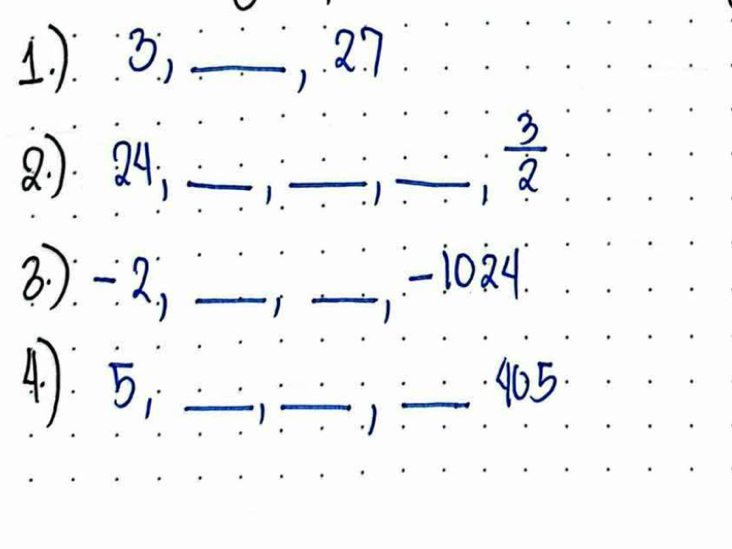 1.) 3, ___, 27
2.) 24, ___, ___, ___, 3/2
3.) -2, ___, ___, -1024
4.) 5, ___, ___, ___ 405